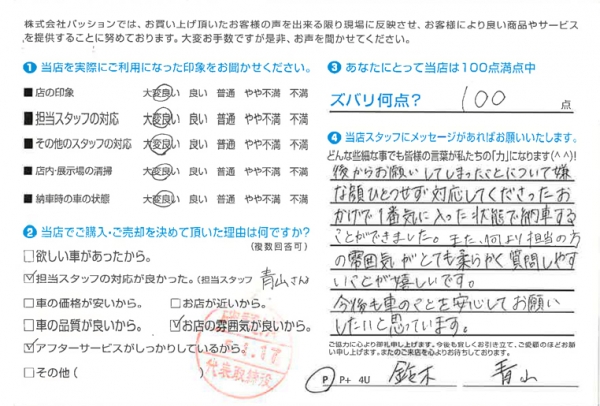 株式会社パッションでは、お買い上げ頂いたお客様の声を出来る限り現場に反映させ、お客様により良い商品やサービス
を提供することに努めております。大変お手数ですが是非、お声を聞かせてください。
❶ 当店を実際にご利用になった印象をお聞かせください。
■店の印象 大変良い 良い 普通 やや不満 不満
■担当スタッフの対応 大変良い 良い 普通 やや不満 不満
■その他のスタッフの対応 大変良い 良い 普通 やや不満 不満
■店内・展示場の清掃 大変良い 良い 普通 やや不満 不満
■納車時の車の状態 大変良い 良い 普通 やや不満 不満
❷ 当店でご購入・ご売却を決めて頂いた理由は何ですか?
(複数回答可)
□欲しい車があったから。
☑担当スタッフの対応が良かった。(担当スタッフ 青山さん
□車の価格が安いから。 □お店が近いから。
□車の品質が良いから。 ☑お店の雰囲気が良いから。
☑アフターサービスがしっかりしているから。
□その他( )
確認済
5.1.17
代表取締役
❸ あなたにとって当店は100点満点中
ズバリ何点? 100 点
❹ 当店スタッフにメッセージがあればお願いいたします。
どんな些細な事でも皆様の言葉が私たちの「力」になります(^^)!
後からお願いしてしまったことについて嫌
な顔ひとつせず対応してくださったお
かげで1番気に入った状態で納車する
ことができました。また、何より担当の方
の雰囲気がとても柔らかく質問しやす
いことが嬉しいです。
今後も車のことを安心してお願い
したいと思っています。
ご協力に心より御礼申し上げます。今後も宜しくお引き立て、ご愛顧のほどお願
い申し上げます。またのご来店を心よりお待ちしております。
P P+ 4U 鈴木 青山